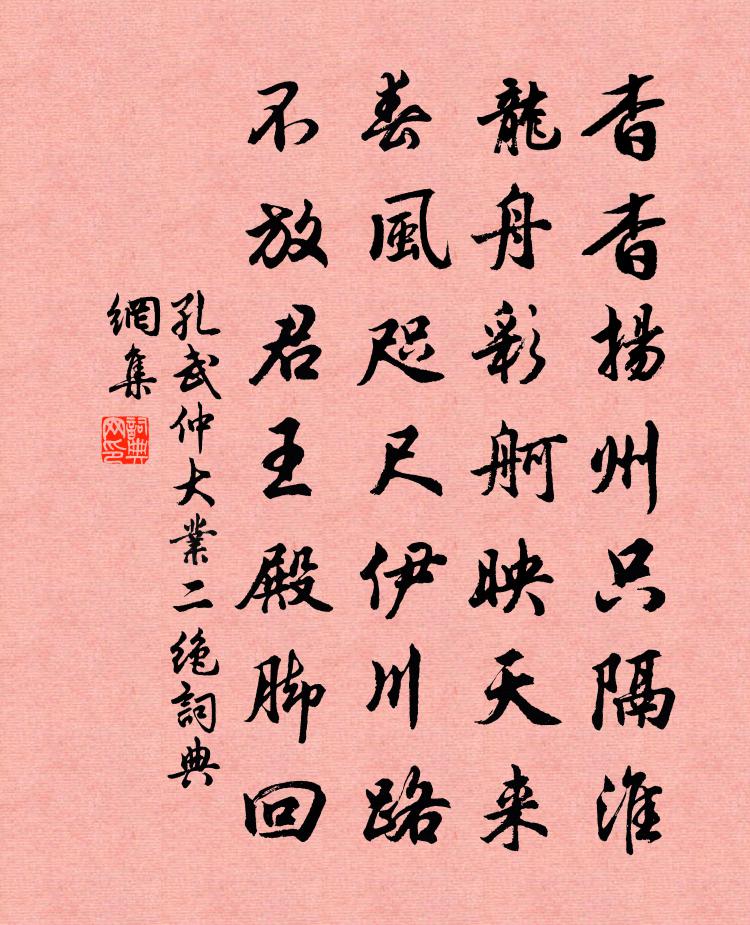 杳杳揚州只隔淮
龍舟彩舸映天来
春風咫尺伊川路
不放君王殿脚回
孔武仲大業二绝詞典
網集
詞典網印